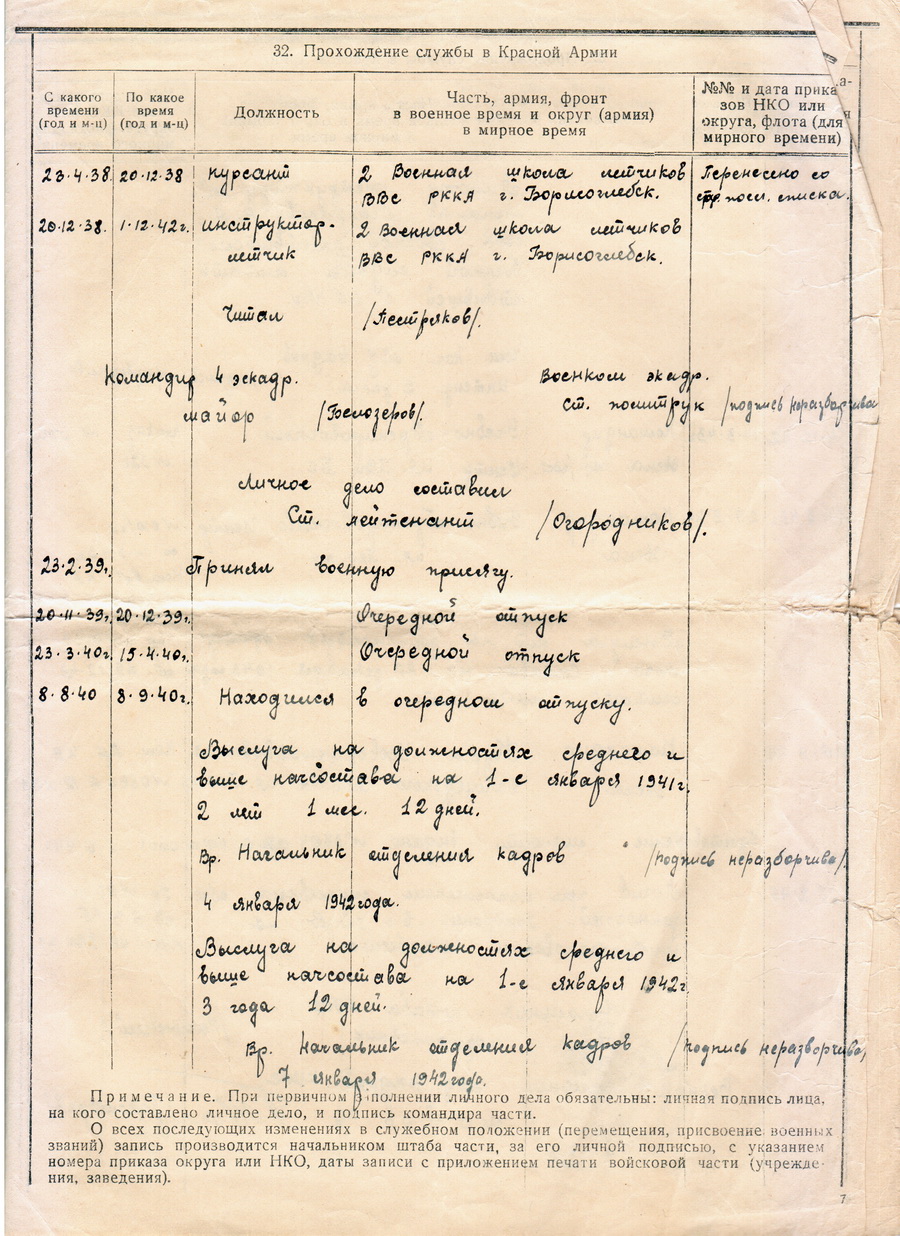 32. Прохождение службы в Красной Армии
С какого времени (год и м-ц)
По какое время (год и м-ц)
Должность
Часть, армия, фронт
в военное время и округ (армия)
в мирное время
№№ и дата прика-
зов НКО или
округа, флота (для
мирного времени)
23·4·38. 20·12·38 курсант 2 Военная школа летчиков Перенесено со
ВВС РККА г. Борисоглебск. посл. списка.
20·12·38. 1·12·42г. инструктор- 2 Военная школа летчиков
летчик ВВС РККА г. Борисоглебск.
Читал /Пестряков/.
Командир 4 эскадр. Военком экадр.
майор /Белозеров/. Ст. политрук /подпись неразборчива
Личное дело составил
Ст. лейтенант /Огородников/.
23·2·39г. Принял военную присягу.
20·11·39г. 20·12·39г. Очередной отпуск
23·3·40г. 15·4·40г. Очередной отпуск
8·8·40 8·9·40г. Находился в очередном отпуску.
Выслуга на должностях среднего и
выше начсостава на 1-е января 1941г.
2 лет 1 мес. 12 дней.
Вр. Начальник отделения кадров /подпись неразборчива/.
4 января 1942 года.
Выслуга на должностях среднего и
выше начсостава на 1-е января 1942г.
3 года 12 дней.
Вр. Начальник отделения кадров /подпись неразборчива,
7 января 1942 года.
Примечание. При первичном заполнении личного дела обязательны: личная подпись лица,
на кого составлено личное дело, и подпись командира части.
О всех последующих изменениях в служебном положении (перемещения, присвоение военных
званий) запись производится начальником штаба части, за его личной подписью, с указанием
номера приказа округа или НКО, даты записи с приложением печати войсковой части (учрежде-
ния, заведения).
7